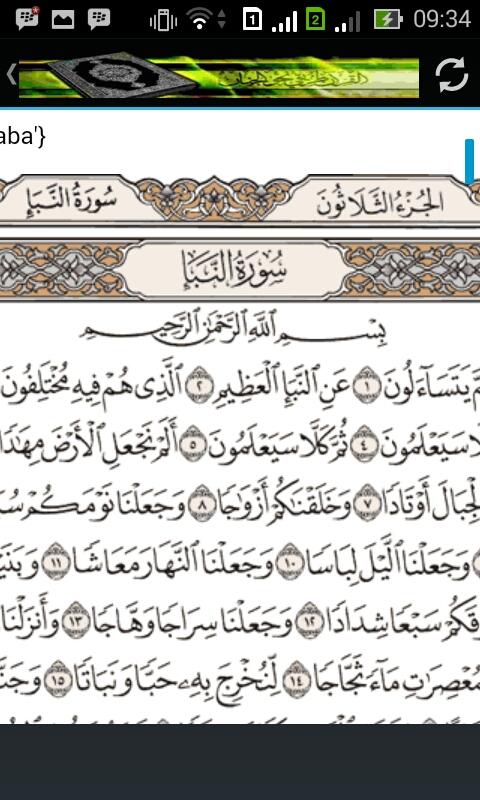 09:34
1 2
aba'}
سُورَةُ النَّبَإِ الجُزْءُ الثَّلَاثُونَ
سُورَةُ النَّبَإِ
بِسْمِ اللَّهِ الرَّحْمَٰنِ الرَّحِيمِ
مَّ يَتَسَآءَلُونَ ١ عَنِ النَّبَإِ الْعَظِيمِ ٢ الَّذِى هُمْ فِيهِ مُخْتَلِفُونَ
لَّا سَيَعْلَمُونَ ٤ ثُمَّ كَلَّا سَيَعْلَمُونَ ٥ أَلَمْ نَجْعَلِ الْأَرْضَ مِهَٰدًا
لْجِبَالَ أَوْتَادًا ٧ وَخَلَقْنَٰكُمْ أَزْوَٰجًا ٨ وَجَعَلْنَا نَوْمَكُمْ سُبَ
وَجَعَلْنَا الَّيْلَ لِبَاسًا ١٠ وَجَعَلْنَا النَّهَارَ مَعَاشًا ١١ وَبَنَيْ
وْقَكُمْ سَبْعًا شِدَادًا ١٢ وَجَعَلْنَا سِرَاجًا وَهَّاجًا ١٣ وَأَنزَلْنَا
مُعْصِرَٰتِ مَآءً ثَجَّاجًا ١٤ لِّنُخْرِجَ بِهِۦ حَبًّا وَنَبَاتًا ١٥ وَجَنَّ